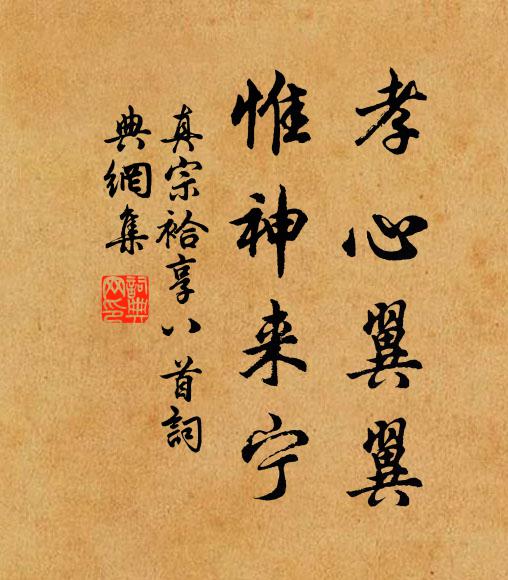 孝心翼翼
惟神来宁
真宗祫享八首詞
典網集
詞典网印